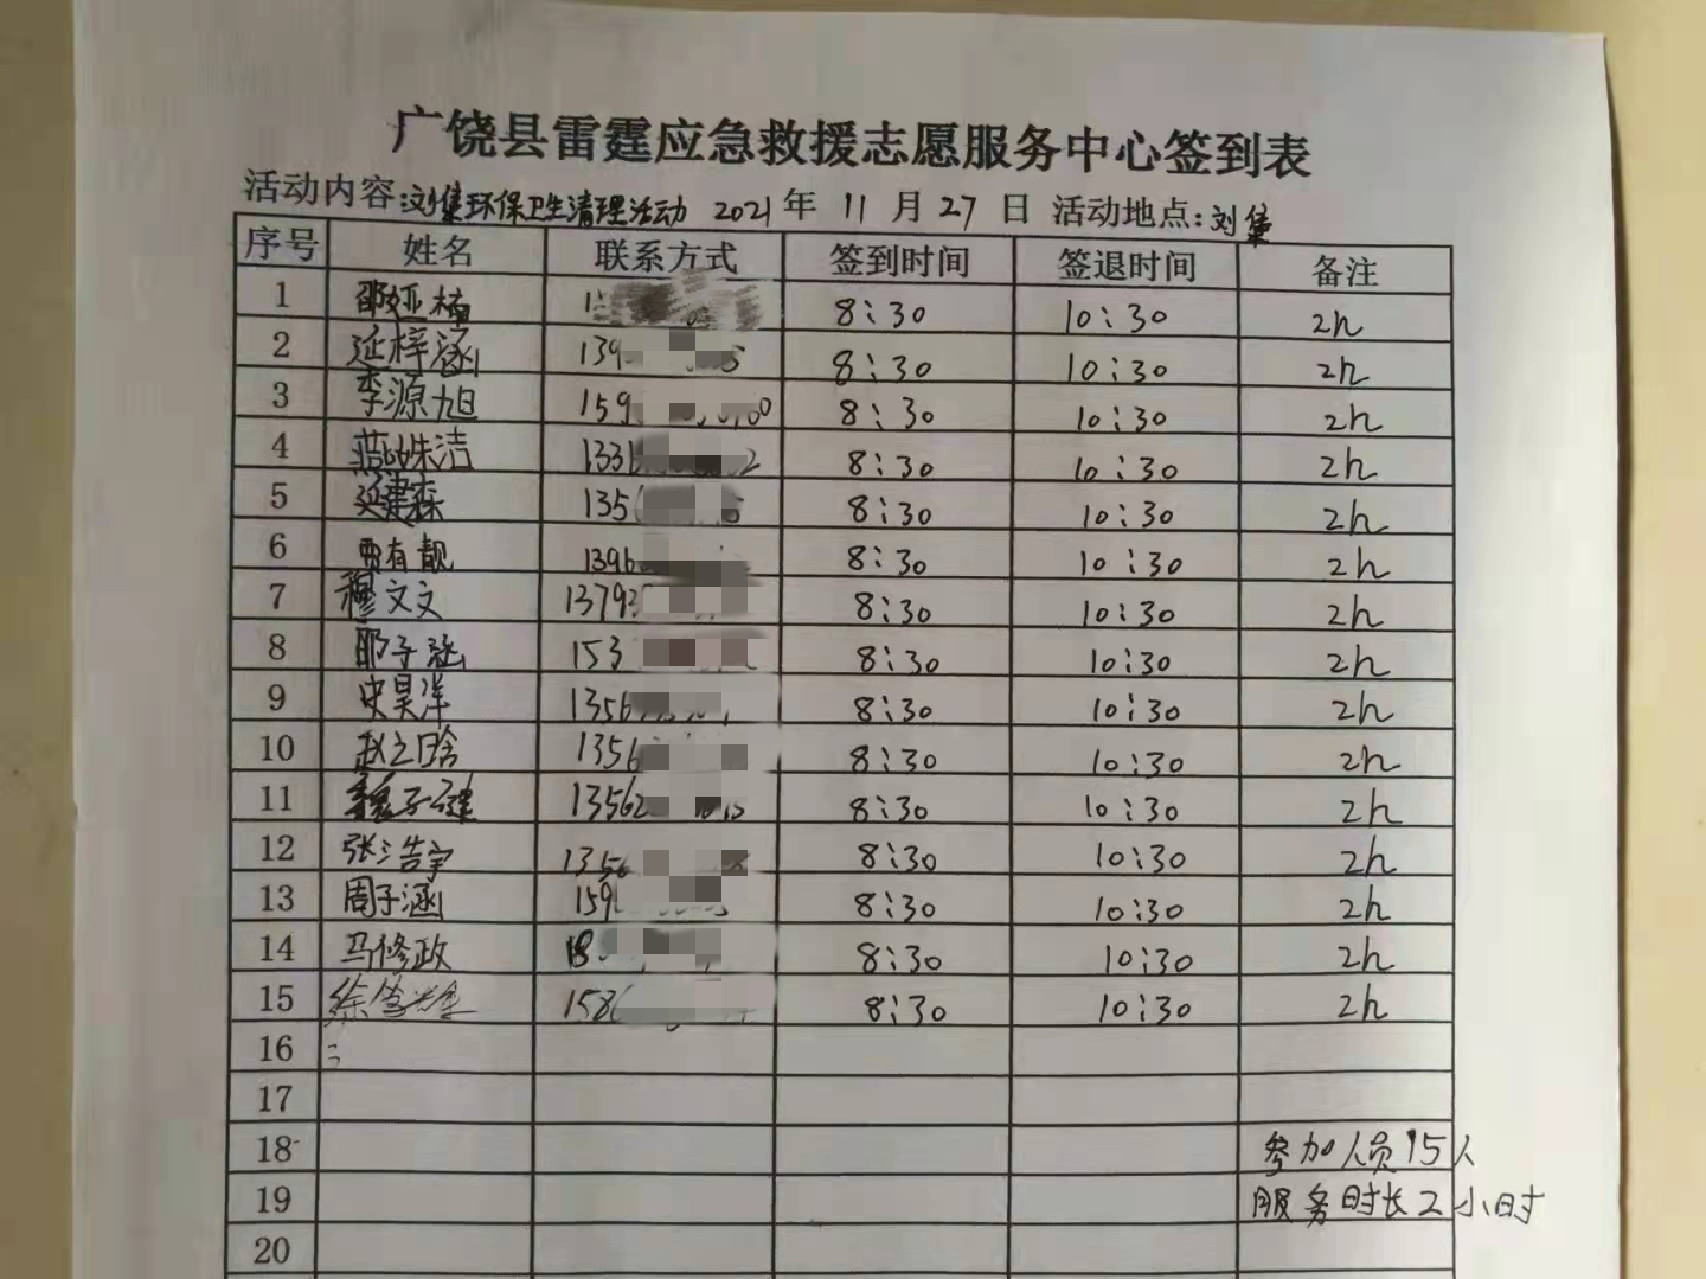 广饶县雷霆应急救援志愿服务中心签到表
活动内容:刘集环保卫生清理活动 2021年 11月27日 活动地点:刘集
序号 姓名 联系方式 签到时间 签退时间 备注
1 8:30 10:30 2h
2 延梓涵 139 8:30 10:30 2h
3 李源旭 159 8:30 10:30 2h
4 133 8:30 10:30 2h
5 延建森 135 8:30 10:30 2h
6 贾有靓 1396 8:30 10:30 2h
7 穆文文 1379 8:30 10:30 2h
8 153 8:30 10:30 2h
9 史昊洋 1356 8:30 10:30 2h
10 赵之晗 1356 8:30 10:30 2h
11 魏子健 13562 8:30 10:30 2h
12 张浩宇 1356 8:30 10:30 2h
13 周子涵 159 8:30 10:30 2h
14 马修政 18 8:30 10:30 2h
15 158 8:30 10:30 2h
16
17
18 参加人员15人
19 服务时长2小时
20